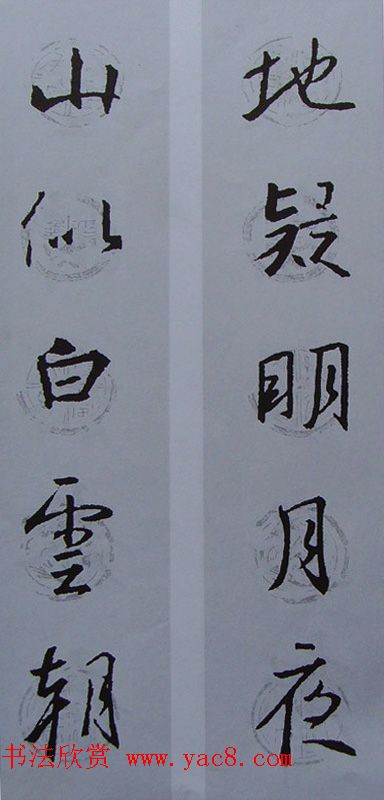 地疑明月夜
山似白雲朝
书法欣赏 www.yac8.com